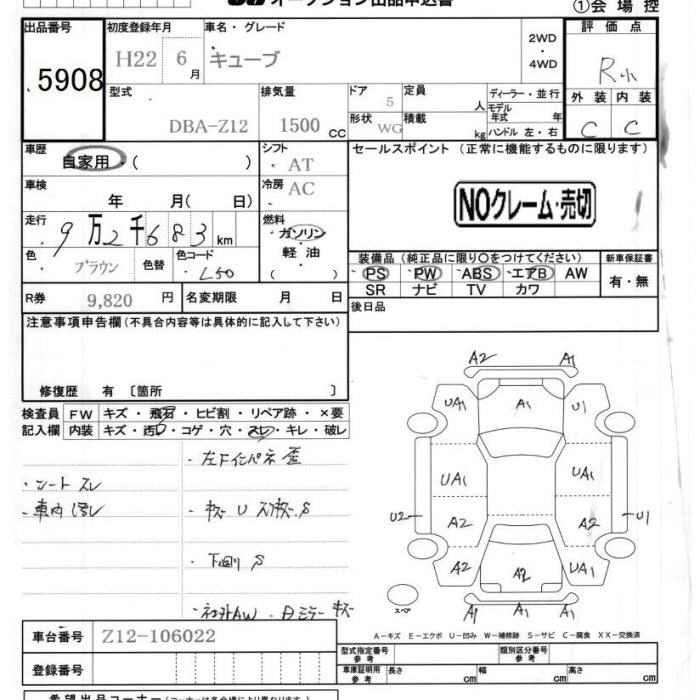 オークション出品申込書
①会場控
出品番号
5908
初度登録年月
H22 6月
車名・グレード
キューブ
2WD
・
4WD
評価点
R小
外装 内装
C C
型式
DBA-Z12
排気量
1500 CC
ドア
5
形状
WG
定員
人
積載
kg
ディーラー・並行
モデル
年式 年
ハンドル 左・右
車歴
自家用・( )
シフト
AT
セールスポイント (正常に機能するものに限ります)
NOクレーム・売切
車検
年 月( 日)
冷房
AC
走行
9万2千683km
燃料
ガソリン
・
軽油
( )
色
ブラウン
色替
色コード
L50
装備品 (純正品に限り〇をつけてください)
PS PW ABS エアB AW
SR ナビ TV カワ
新車保証書
有・無
R券
9,820 円
名変期限 月 日
後日品
注意事項申告欄(不具合内容等は具体的に記入して下さい)
修復歴 有 〔箇所 〕
検査員
記入欄
FW キズ・飛石・ヒビ割・リペア跡・×要
内装 キズ・汚レ・コゲ・穴・スレ・キレ・破レ
・左Fインパネ歪
・シートスレ
・車内汚レ
・キズ U スリキズ S
・下回り S
・社外AW ・白ミラーキズ
A2 A1
UA1 A1 U1
UA1 UA1
U2 A2 A2 U1
A2 A2 UA1
A1 A1 A1
スペア
A-キズ E-エクボ U-凹み W-補修跡 S-サビ C-腐食 XX-交換済
車台番号
Z12-106022
登録番号
型式指定番号
参考
類別区分番号
参考
車庫証明用
参考
長さ cm
幅 cm
高さ cm
希望出品コーナー(コーナーは各会場により異なります)